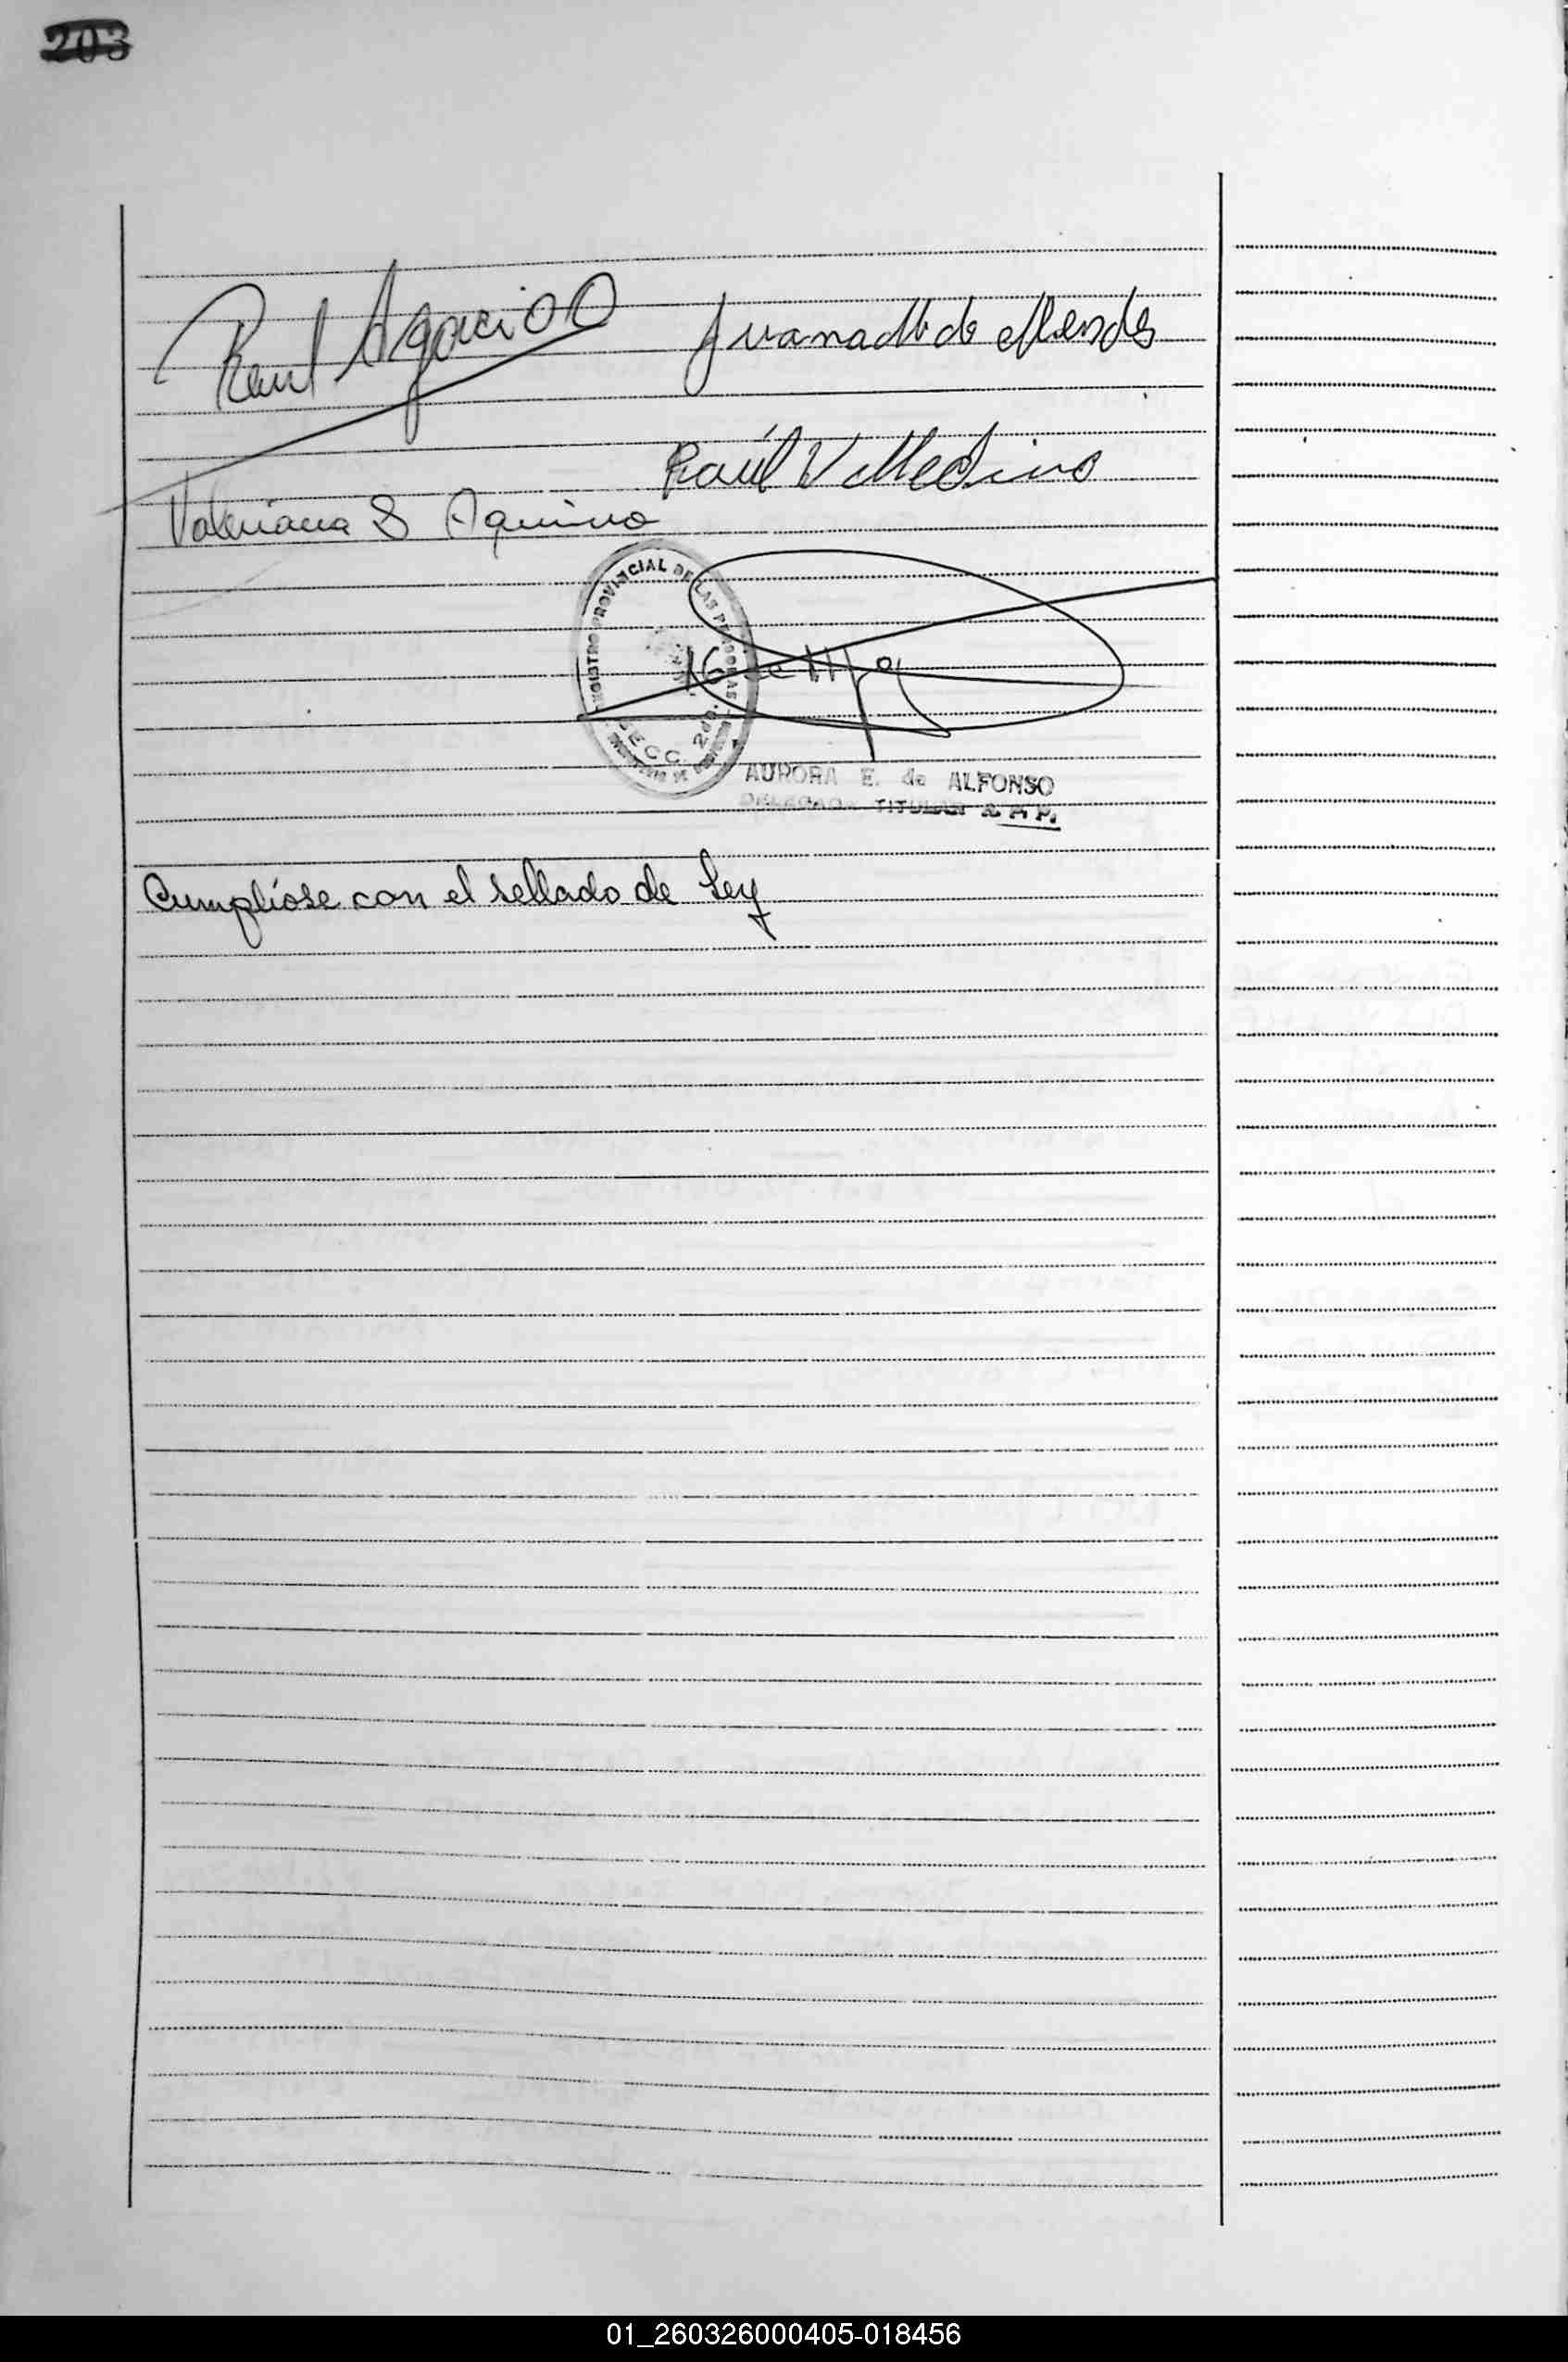 203
Raul Agacio
Juana M de Mendes
Raúl V Medina
Valeriana S Aquino
REGISTRO PROVINCIAL DE LAS PERSONAS
SECC. 2da.
AURORA E. de ALFONSO
DELEGADA TITULAR R. P. P.
Cumplióse con el sellado de Ley
01_260326000405-018456